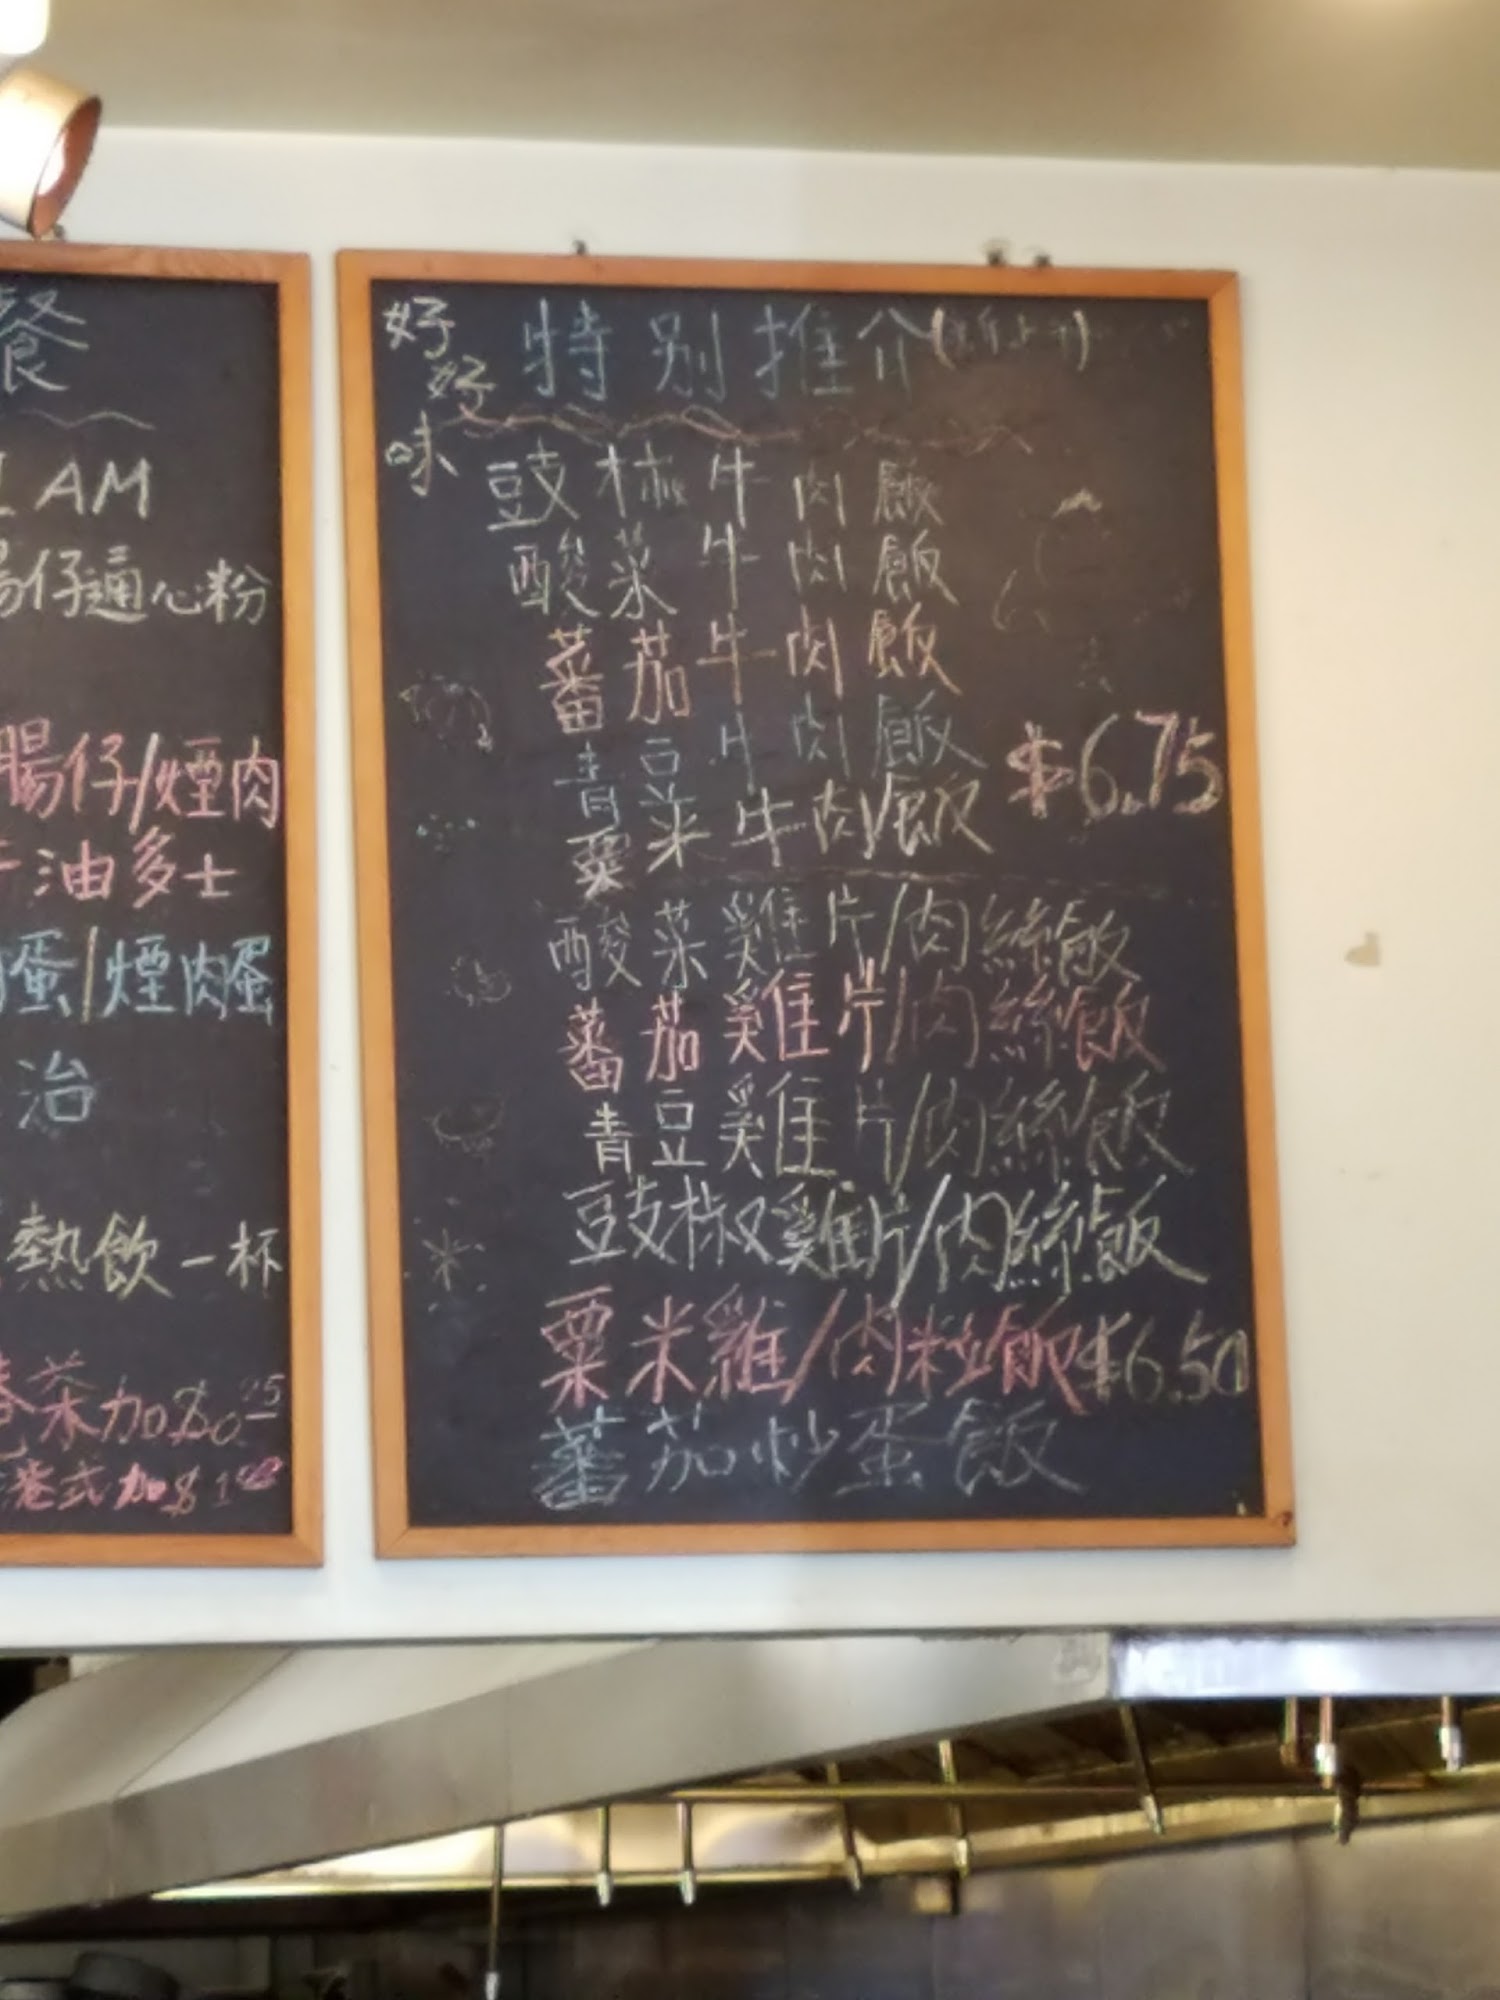 餐
AM
腸仔通心粉
腸仔/煙肉
牛油多士
蛋/煙肉蛋
治
熱飲一杯
茶加$0.25
港式加$1.00
好好味
特別推介
豉椒牛肉飯
酸菜牛肉飯
蕃茄牛肉飯
青豆牛肉飯
$6.75
粟米牛肉飯
酸菜雞片/肉絲飯
蕃茄雞片/肉絲飯
青豆雞片/肉絲飯
豉椒雞片/肉絲飯
粟米雞/肉粒飯 $6.50
蕃茄炒蛋飯